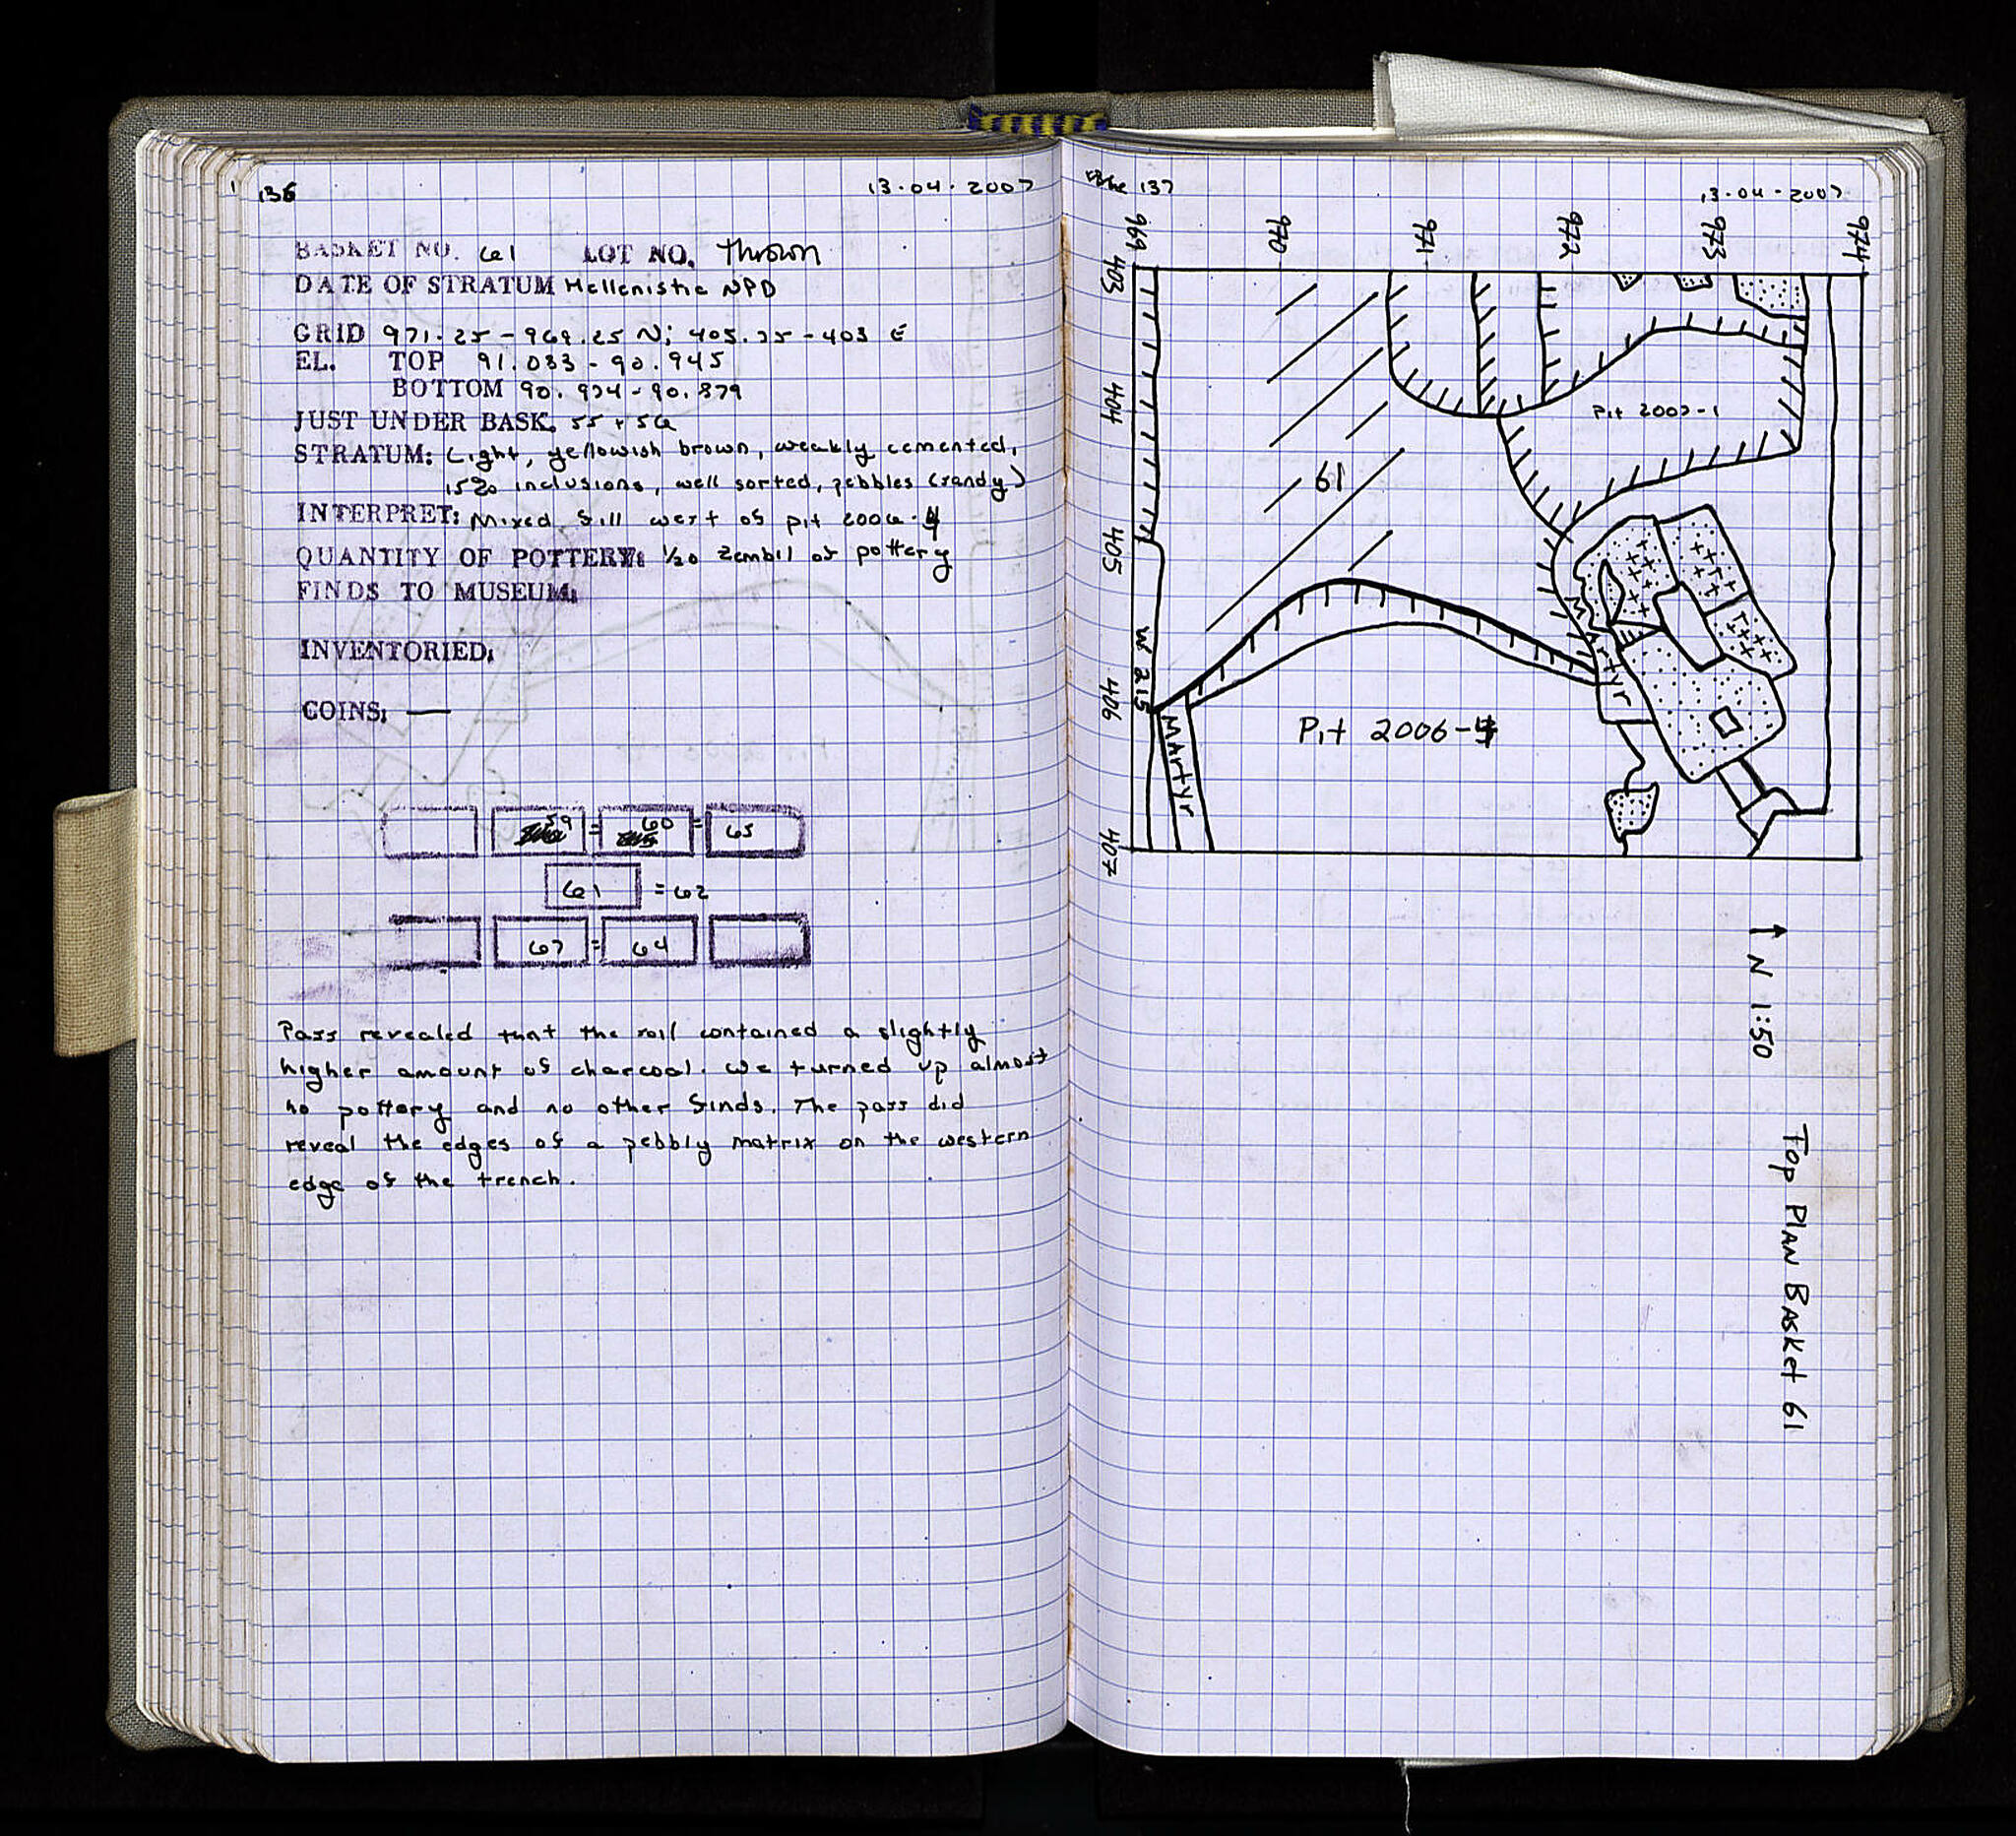 136
13.04.2007
BASKET NO. 61 LOT NO. Thrown
DATE OF STRATUM Hellenistic NPD
GRID 971.25-969.25 N; 405.25-403 E
EL. TOP 91.033-90.945
BOTTOM 90.924-90.879
JUST UNDER BASK. 55 + 56
STRATUM: Light, yellowish brown, weakly cemented,
15% inclusions, well sorted, pebbles (sandy)
INTERPRET: Mixed fill west of pit 2006-4
QUANTITY OF POTTERY: 1/20 zembil of pottery
FINDS TO MUSEUM:
INVENTORIED:
COINS: —
59 = 60 = 65
61 = 62
67 = 64
Pass revealed that the soil contained a slightly
higher amount of charcoal. We turned up almost
no pottery and no other finds. The pass did
reveal the edges of a pebbly matrix on the western
edge of the trench.
137
13.04-2007
969 970 971 972 973 974
403
404
405
406
407
Pit 2007-1
61
Martyr
W 215
Pit 2006-4
Martyr
N 1:50
Top Plan Basket 61